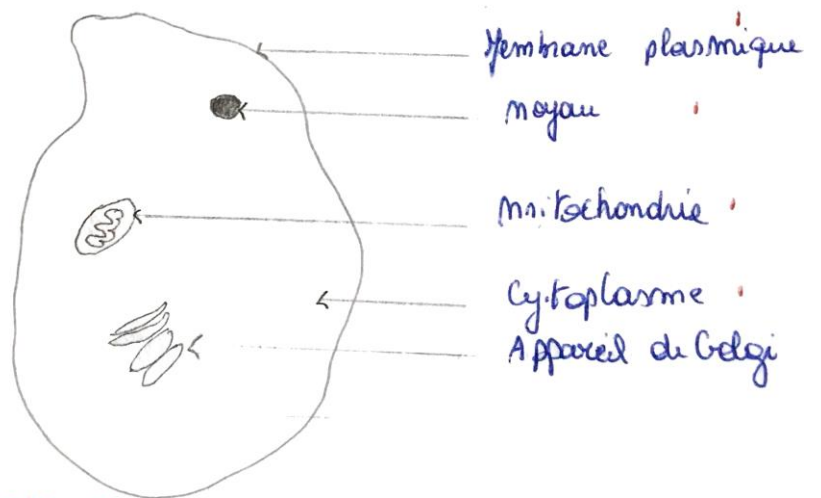 Membrane plasmique
noyau
mitochondrie
Cytoplasme
Appareil de Golgi